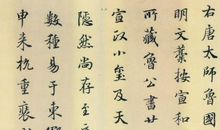 右唐太師魯國
明文藁按宣和
所藏魯公書廿
宣以小璽及天
隱然尚存至
數種易于東
申来杭重裏